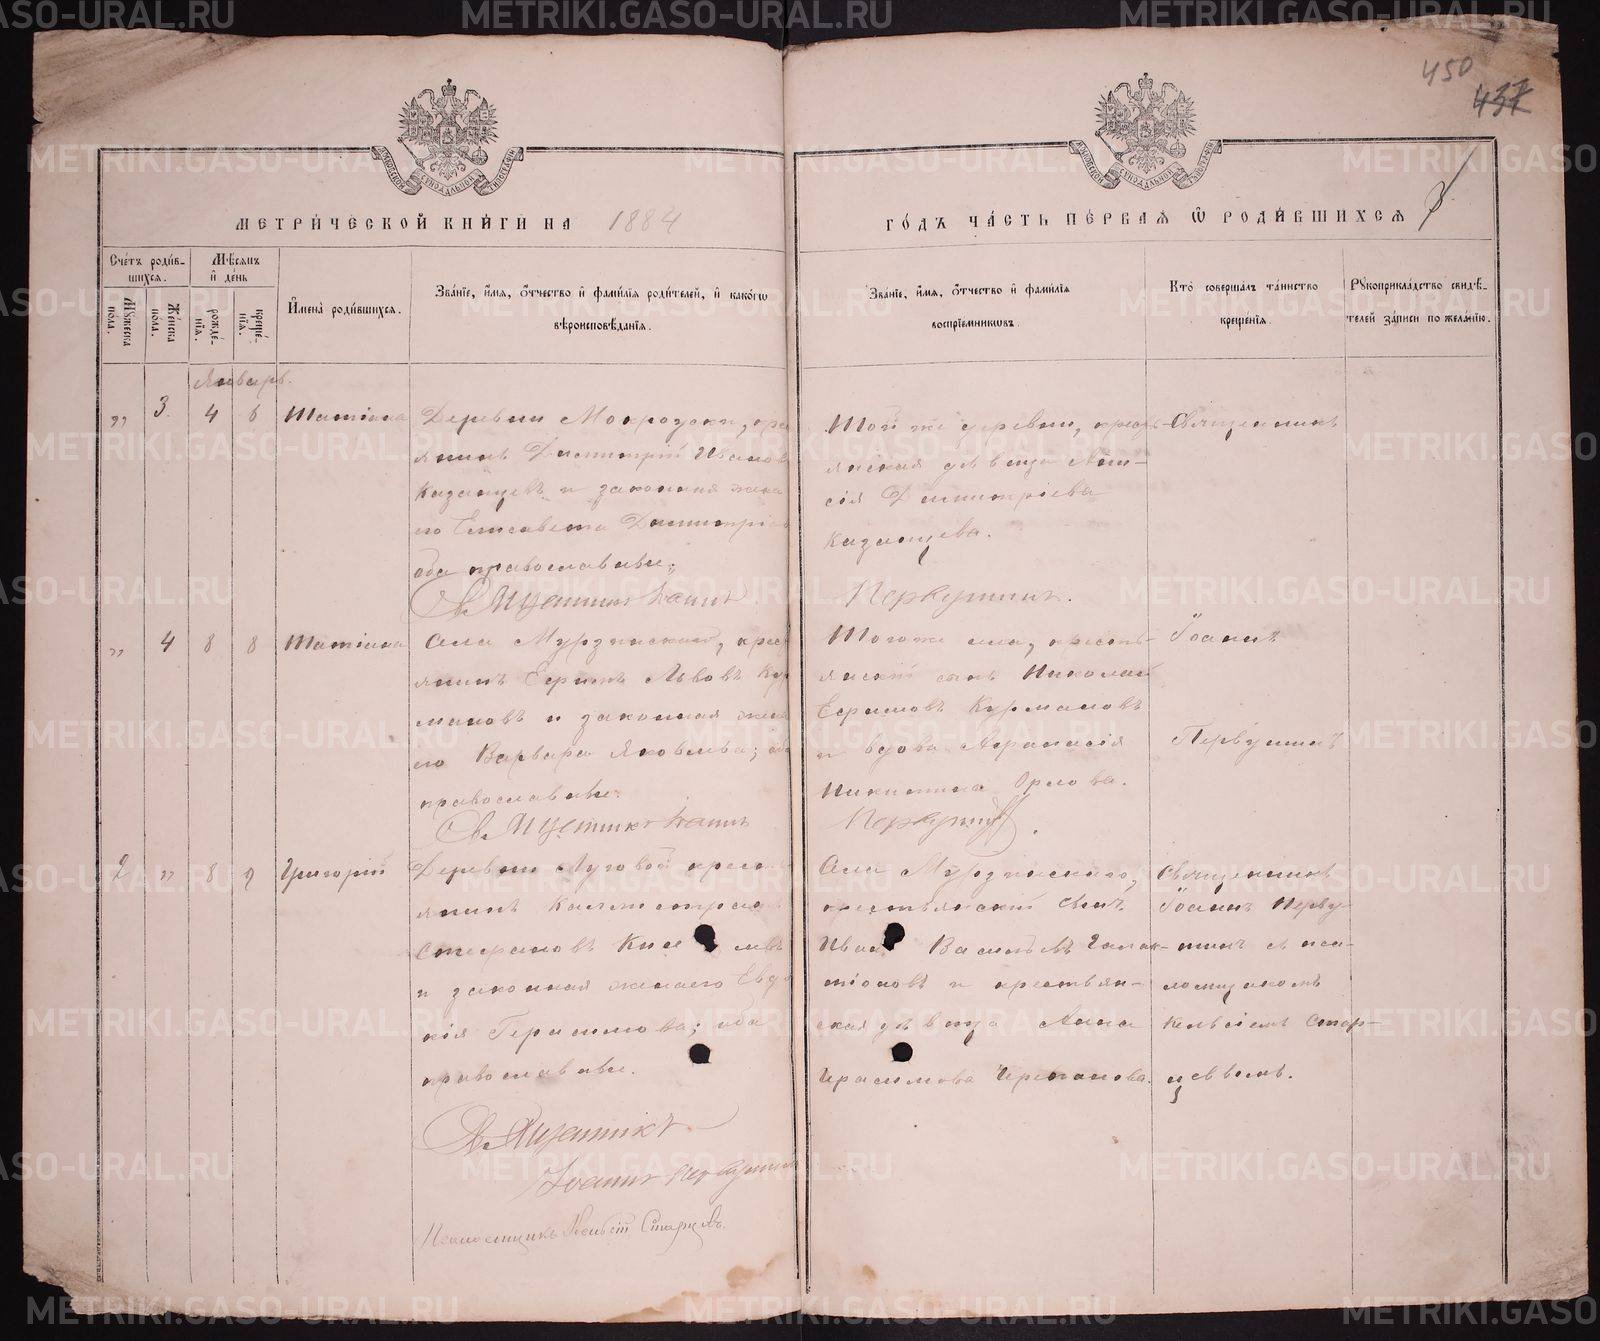 450
437
МЕТРИ́ЧЕСКОЙ КНИ́ГИ НА 1884
ГО́ДЪ ЧА́СТЬ ПЕ́РВАЯ Ѿ РОДИ́ВШИХСЯ
Сче́тъ роди́в-
шихся.
Му́жеска по́ла.
Же́нска по́ла.
Мѣ́сяцъ
и́ де́нь
рожде́-
нїя.
креще́-
нїя.
И́мена̀ роди́вшихся.
Зва́нїе, и́мя, о́тчество и́ фами́лїя роди́телей, и́ како́гѡ
вѣроисповѣ́данїя.
Зва́нїе, и́мя, о́тчество и́ фами́лїя
воспрїе́мникѡвъ.
Кто̀ соверша́лъ та́инство
креще́нїя.
Рꙋкоприкла́дство свидѣ́-
телей за́писи по жела́нїю.
Январь.
„ 3. 4 6 Татіана
Деревни Мокроуски, крес
янинъ Димитрій Иванов
Казанцевъ и законная жена
его Елисавета Димитріев
оба православные;
Священникъ Іоаннъ
Той же деревни, кресть-
янская дѣвица
сія Димитріева
Казанцева.
Первушинъ.
Священникъ
„ 4 8 8 Татіана
Села Мурзинскаго, крес
янинъ Ефимъ Львовъ Кур
мановъ и законная жена
его Варвара Яковлева; оба
православные.
Священникъ Іоаннъ
Тогоже села, кресть-
янскій сынъ Николай
Ефимовъ Курмановъ
и вдова Афанасія
Никитина Орлова.
Первушинъ.
Іоаннъ
Первушинъ
2 „ 8 9 Григорій
Деревни Луговой кресть
янинъ Каллистратъ
Стефановъ
и законная жена его Евдо
кія Герасимова; оба
православные.
Священникъ
Іоаннъ Первушинъ
Псаломщикъ Кельсій Старцевъ.
Села Мурзинскаго,
крестьянскій сынъ
Иванъ Васильевъ Галак-
тіоновъ и крестьян-
ская дѣвица Анна
Герасимова Черепанова.
Священникъ
Іоаннъ Перву-
шинъ съ пса-
ломщикомъ
Кельсіемъ Стар-
цевымъ.
METRIKI.GASO-URAL.RU